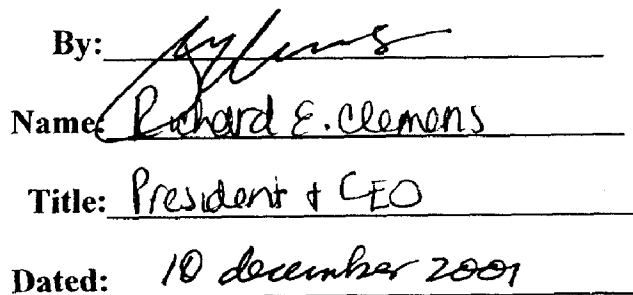 By:
Name: Richard E. Clemens
Title: President + CEO
Dated: 10 december 2001